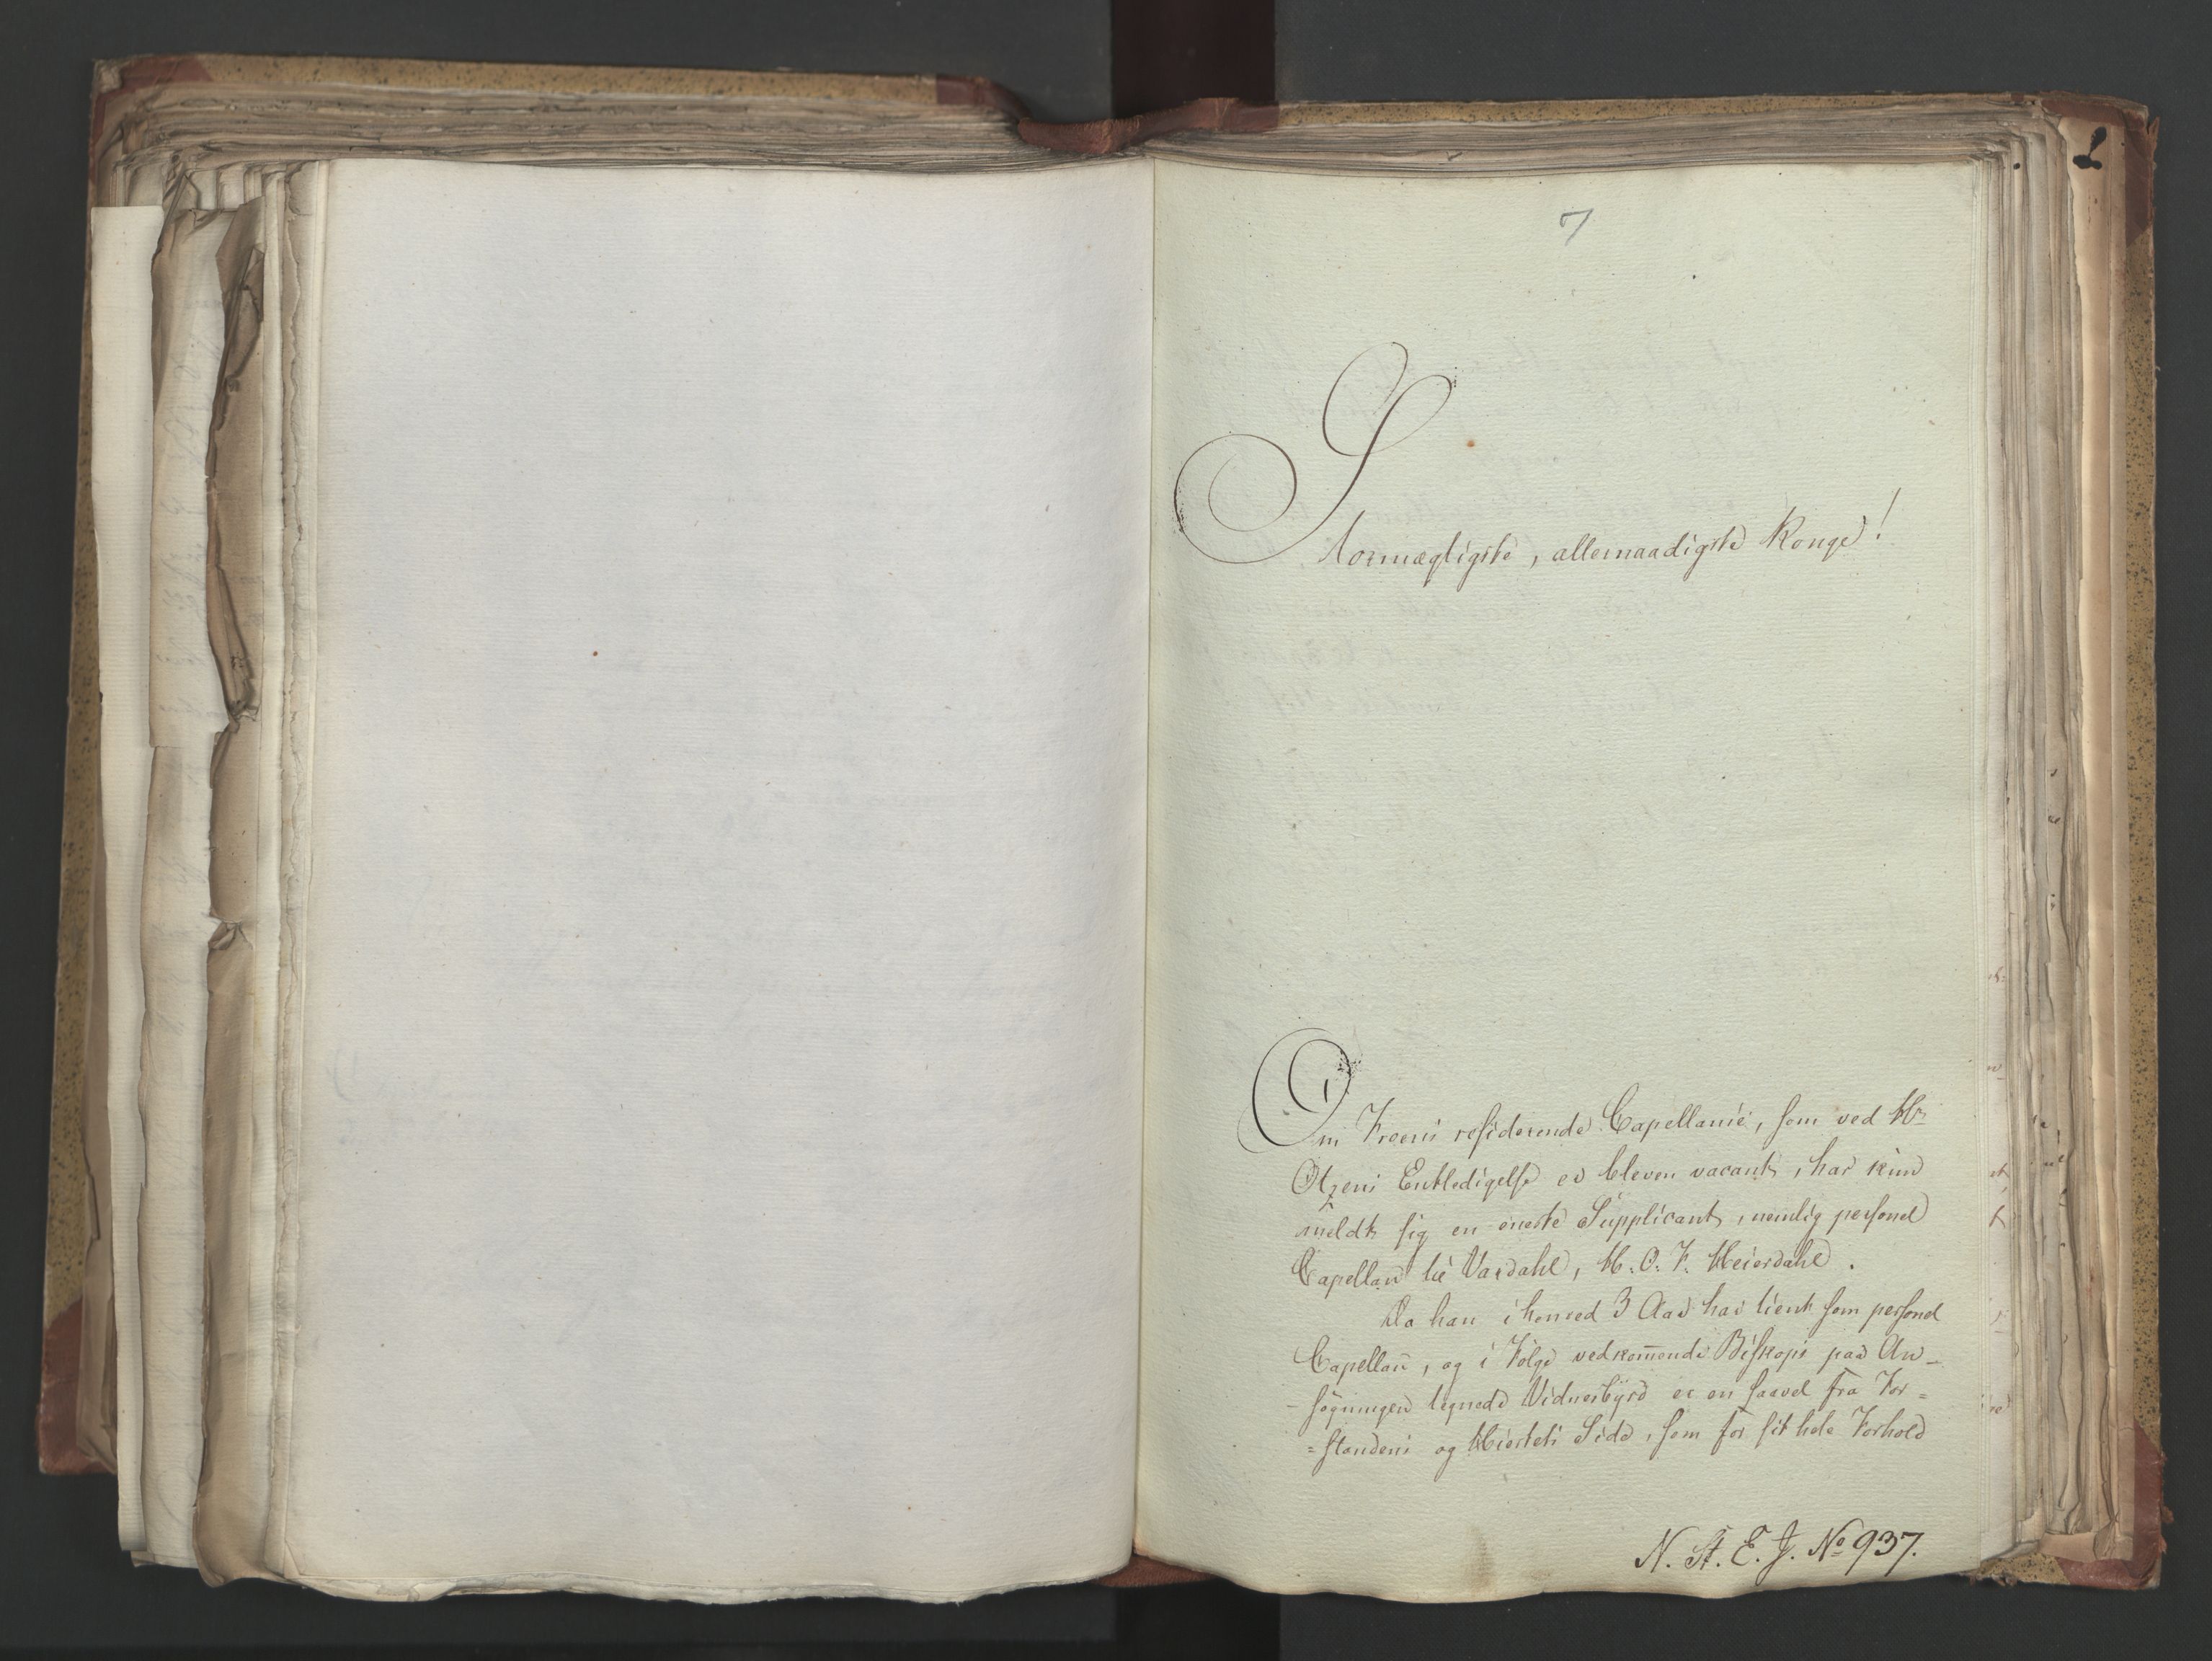 7
Stormægtigste, allernaadigste Konge!
Om Froens residerende Capellanie, som ved Hr
Otzens Entledigelse er bleven vacant, har kun
meldt sig en eneste Supplicant, nemlig personel
Capellan til Vardahl, H. O. F. Heierdahl.
Da han i henved 3 Aar har tient som personel
Capellan̅, og i Følge vedkom̅ende Biskops paa An-
-søgningen tegnede Vidnesbyrd er en saavel fra For=
=standens og Hiertets Side, som for sit hele Forhold
N. St. E. J. No 937.